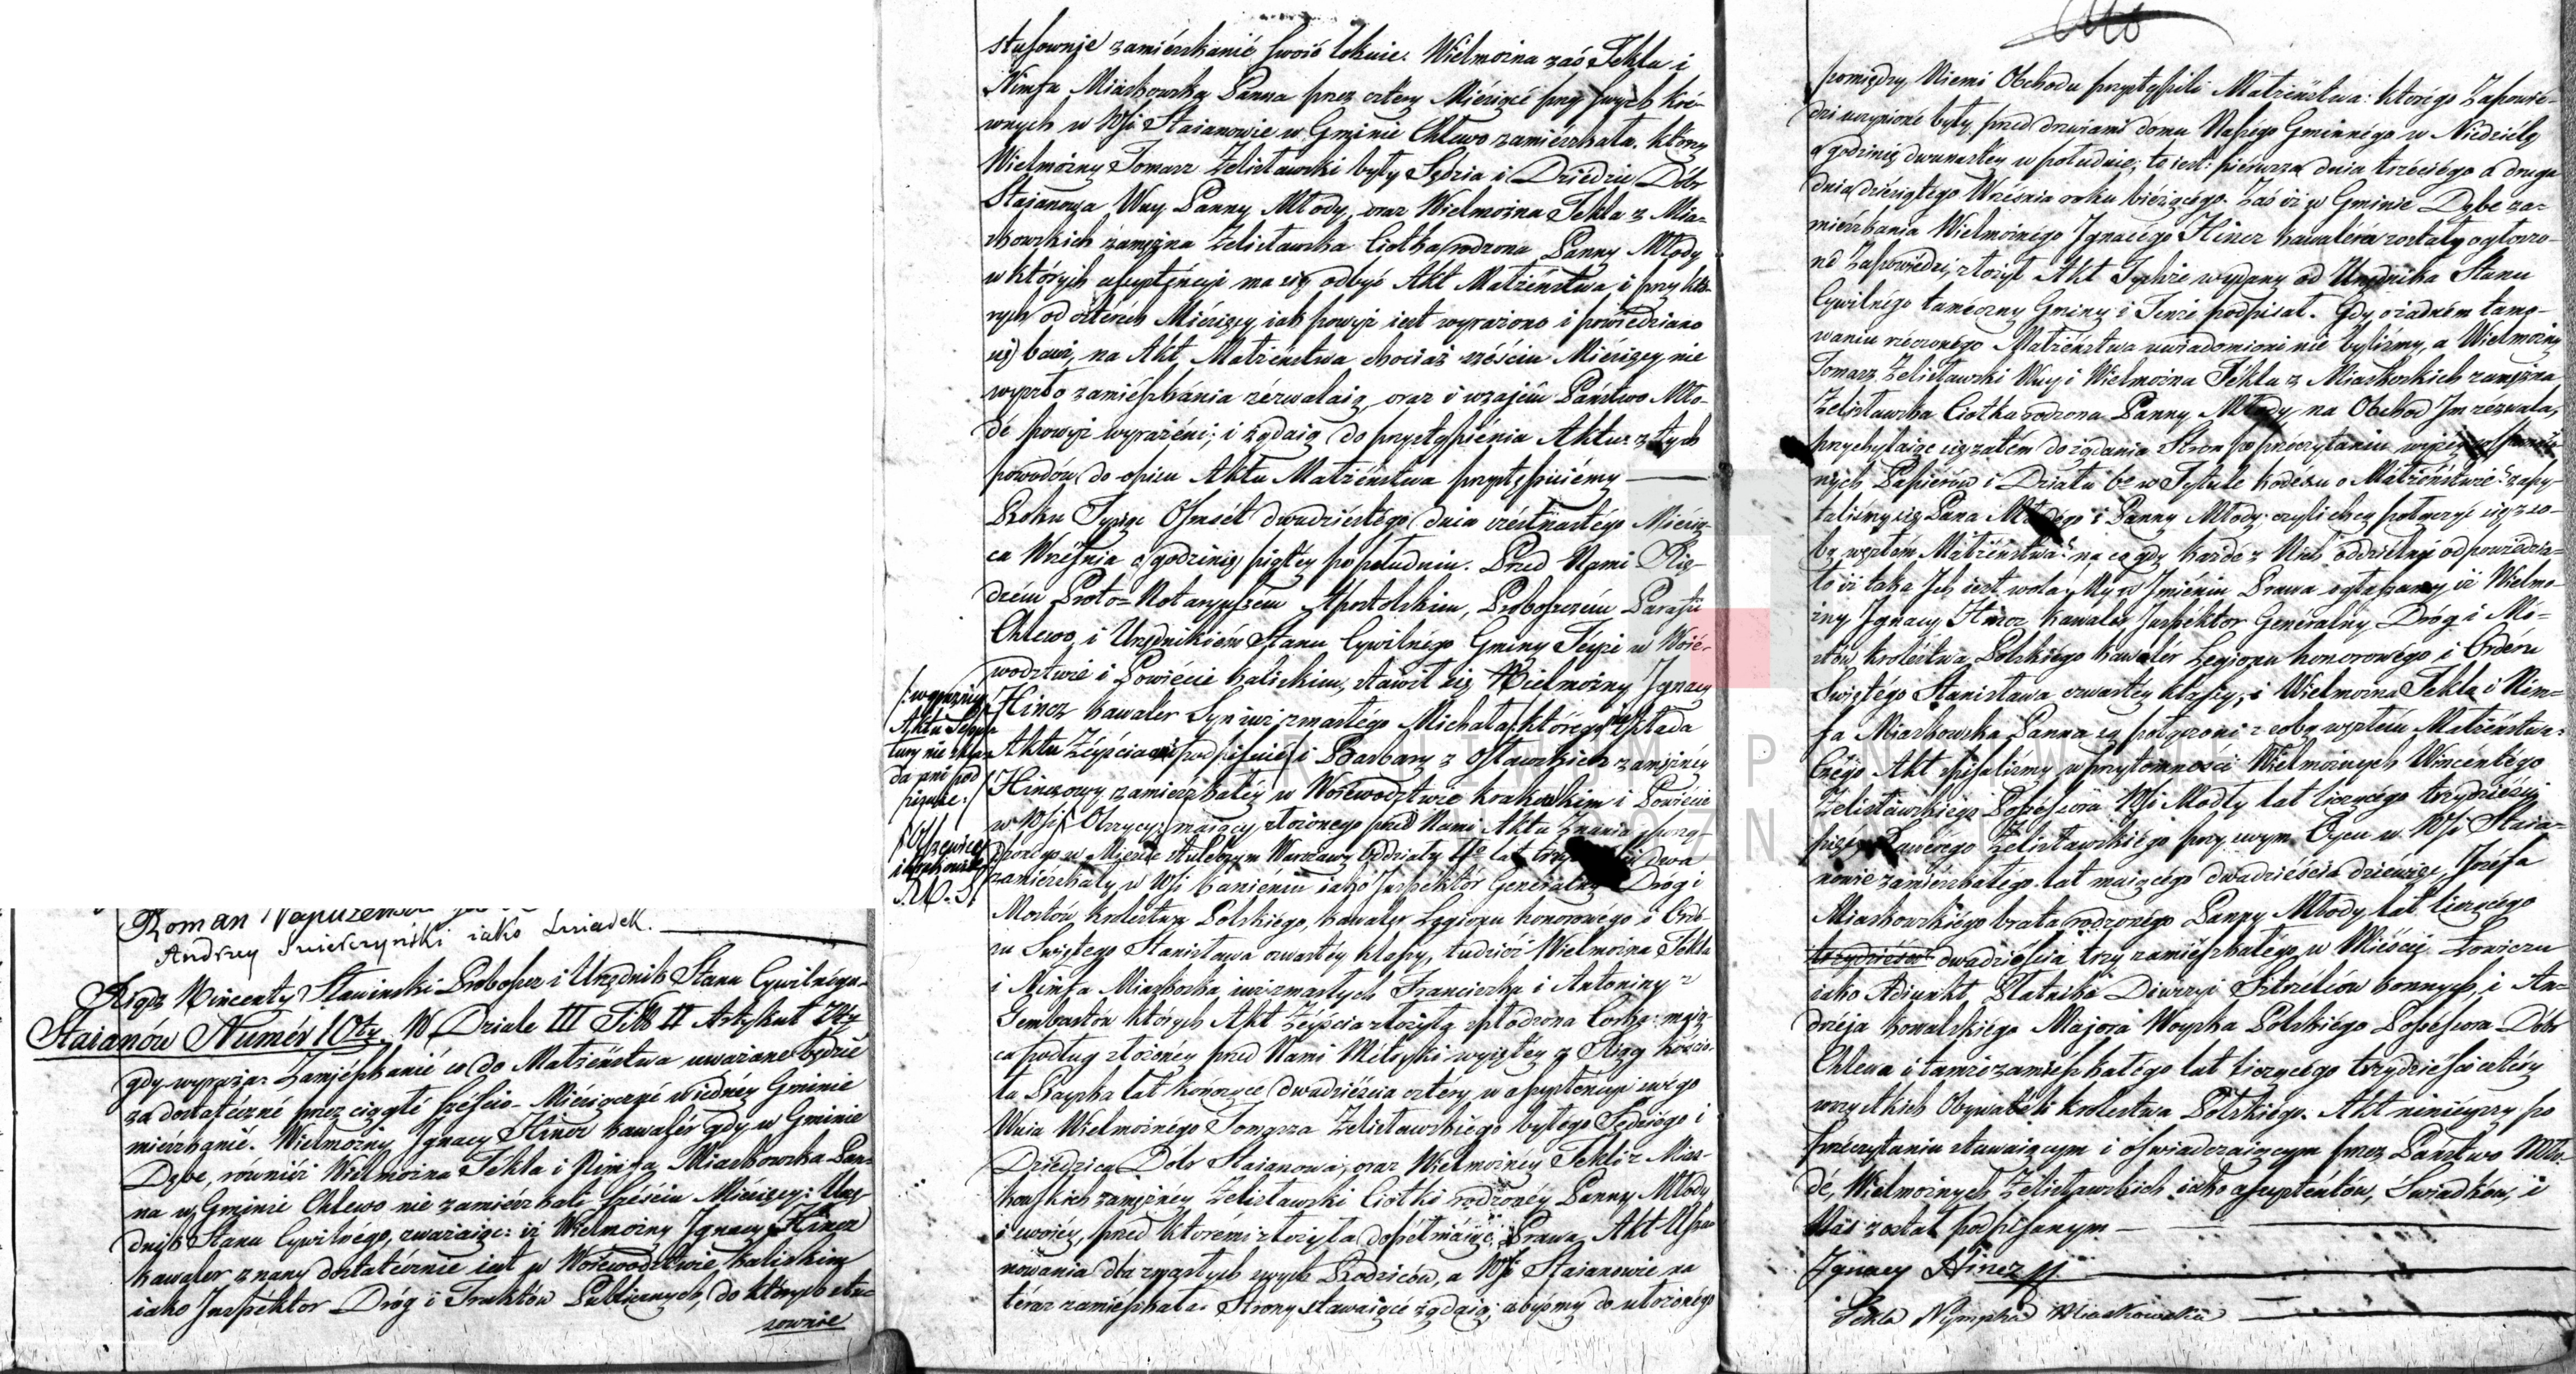 Roman
Andrzey Swierczyński iako Swiadek.
Xiądz Wincenty Sławinski Proboszcz i Urzędnik Stanu Cywilnégo
Staianów Numér 10ty. W Dziale III Tytule II Artykuł
gdy wyraża: Zamiészkanié co do Małżéństwa uważane będzie
za dostatéczné przez ciągłé sześcio-Miésięczné w iednéy Gminie
miészkanié. Wielmożny Jgnacy Hincz Kawalér gdy w Gminie
Dębe, równiéż Wielmożna Tékla i Nimfa Miaskowska Pan-
na w Gminie Chlewo nie zamiészkali sześciu Miésięcy: Urzę-
dnik Stanu Cywilnégo, zważaiąc: iż Wielmożny Jgnacy Hincz
Kawaler znany dostatécznie iest w Woiewodztwie Kaliskim
iako Jnspéktor Dróg i Traktów Publicznych, do których sto-
sownie
stosownie zamiészkanié swoié lokuie. Wielmożna zaś Tekla i
Nimfa Miaskowska Panna przez cztery Miésiącé przy swych kré-
wnych w Wsi Staianowie w Gminie Chlewo zamiészkała. którzy
Wielmożny Tomasz Zelisławski były Sędzia i Dziédzic Dóbr
Staianowa Wuy Panny Młody, oraz Wielmożna Tekla z Mia-
skowskich zamężna Zelisławska Ciotka rodzona Panny Młody
w których assystencyi ma się odbyć Akt Małżéństwa i przy któ-
rych od cztérech Miésięcy iak powyż iest wyrażono i powiedziano
się bawi, na Akt Małżéństwa chociaż sześciu Miésięcy nie
wyszło zamiészkania zézwalaią, oraz i wzaiém Państwo Mło-
dé powyż wyrażéni; i żądaią do przystąpiénia Aktu: z tych
powodów do opisu Aktu Małżéństwa przystąpiliśmy
Roku Tysiąc Osmsét dwudziéstégo dnia szésnastégo Miésią-
ca Wrzésnia o godzinié piątéy po południu. Przed Nami Xię-
dzém Proto=Notaryuszém Apostolskim, Proboszczém Parafii
Chlewo i Urzędnikiém Stanu Cywilnégo Gminy Téyże w Woié-
wodztwie i Powiécie Kaliskim, stawił się Wielmożny Jgnacy
Hincz Kawaler Syn iuż zmarłégo Michała którégo nie składa
Aktu Zéyścia ani i Barbary z Osławskich zamężnéy
Hinczowy zamieszkałéy w Woiéwodztwie Krakowskim i Powiécie
w Wsi Olszycy; maiący złożonego przed Nami Aktu Znania
w Miescie Stołecznym Warszawy Oddziału 4go lat dwa
zamieszkały w Wsi Kamiéniu iako Jnspéktor Generalny Dróg i
Mostów Krolestwa Polskiégo, Kawaler Legionu honorowégo i Ordé-
ru Swiętégo Stanisława czwartéy klassy, tudziéż Wielmożna Tekla
i Nimfa Miaskoska iuż zmarłych Franciszka i Antoniny z
Gembartów których Akt Zéyścia złożyła spłodzona Corka: maią-
ca podług złożonéy przed Nami Métryki wyiętéy z Xiąg Kościo-
ła lat kończące dwadziéścia cztery w assystencyi swégo
Wuia Wielmożnégo Tomasza Zelisławskiégo byłego Sędziégo i
Dziédzica Dobr Staianowa, oraz Wielmożnéy Tekli z Mias-
kowskich zamężnéy Zelisławski Ciotki rodzonéy Panny Młody
i swoiéy, przed ktoremi złożyła dopełniaiąc Prawa Akt Usza-
nowania dla zmarłych swych Rodziców, a w Wsi Staianowie na
téraz zamiészkała. Strony stawaiącé żądaią, abyśmy do ułożonégo
/: w graniéy
Aktu
tury nie skła
da ani pod
pisuie :/
pomiędzy Niemi Obchodu przystąpili Małżéństwa: którégo Zapowié-
dzi uczynioné były przed drzwiami domu Naszégo Gminnégo w Niedziélę
o godzinié dwunastéy w południé; to iest: piérwsza dnia trzéciégo a druga
dnia dziésiątégo Wrzésnia roku biéżącégo. Zaś iż w Gminie Dębe za-
miészkania Wielmożnégo Jgnacégo Hincz Kawaléra zostały ogłoszo-
né Zapowiédzi, złożył Akt Tychże wydany od Urzędnika Stanu
Cywilnégo taméczny Gminy i Tenżé podpisał. Gdy o żadném tamo-
waniu rzéczonégo Małżéństwa uwiadomieni nié byliśmy, a Wielmożny
Tomasz Zelisławski Wuy i Wielmożna Tékla z Miaskoskich zamężna
Zelisławska Ciotka rodzona Panny Młody na Obchod Jm zézwala,
przychylaiąc się zatém do żądania Stron po przéczytaniu wyżéy
nych Papiérów i Działu 6go w Tytule Kodéxu o Małżéństwié: zapy-
taliśmy się Pana Młodégo i Panny Młody: czyli chcą połączyć się z so-
bą węzłém Małżéństwa? na co gdy każdé z Nich oddziélnie odpowiédzia-
ło iż taka Jch iest wola, My w Jmiéniu Prawa ogłaszamy iż Wielmo-
żny Jgnacy Hincz Kawaler Jnspéktor Generalny Dróg i Mo-
stów Królestwa Polskiégo Kawalér Legionu honorowégo i Ordéru
Swiętégo Stanisława czwartéy klassy, i Wielmożna Tekla i Nim=
fa Miaskowska Panna są połączoni z sobą węzłém Małżéństwa:
Czégo Akt spisaliśmy w przytomności Wielmożnych Wincéntégo
Zelisławskiégo Possessora Wsi Modły lat liczącégo trzydzieści
Xawérego Zelisławskiégo przy swym Oycu w Wsi Staia-
nowie zamiészkałégo lat maiącégo dwadziéścia dziéwięć, Józéfa
Miaskowskiégo brata rodzonégo Panny Młody lat liczącégo
trzydzieści dwadziéścia trzy zamiészkałégo w Miéście Łowiczu
iako Adiunkt Płatnika Diwizyi Sztrélców konnych, i An=
drzéja Kowalskiégo Majora Woyska Polskiégo Possessora Dóbr
Chléwa i tamże zamiészkałégo lat liczącégo trzydziéści cztéry
wszystkich Obywatéli Krolestwa Polskiégo. Akt niniéyszy po
przeczytaniu stawaiącym i oświadczaiącym przez Państwo Mło-
dé, Wielmożnych Zelisławskich iako assystentów, Swiadków, i
Nas został podpisanym
Jgnacy Hincz
Tekla Nympha Miaskowska